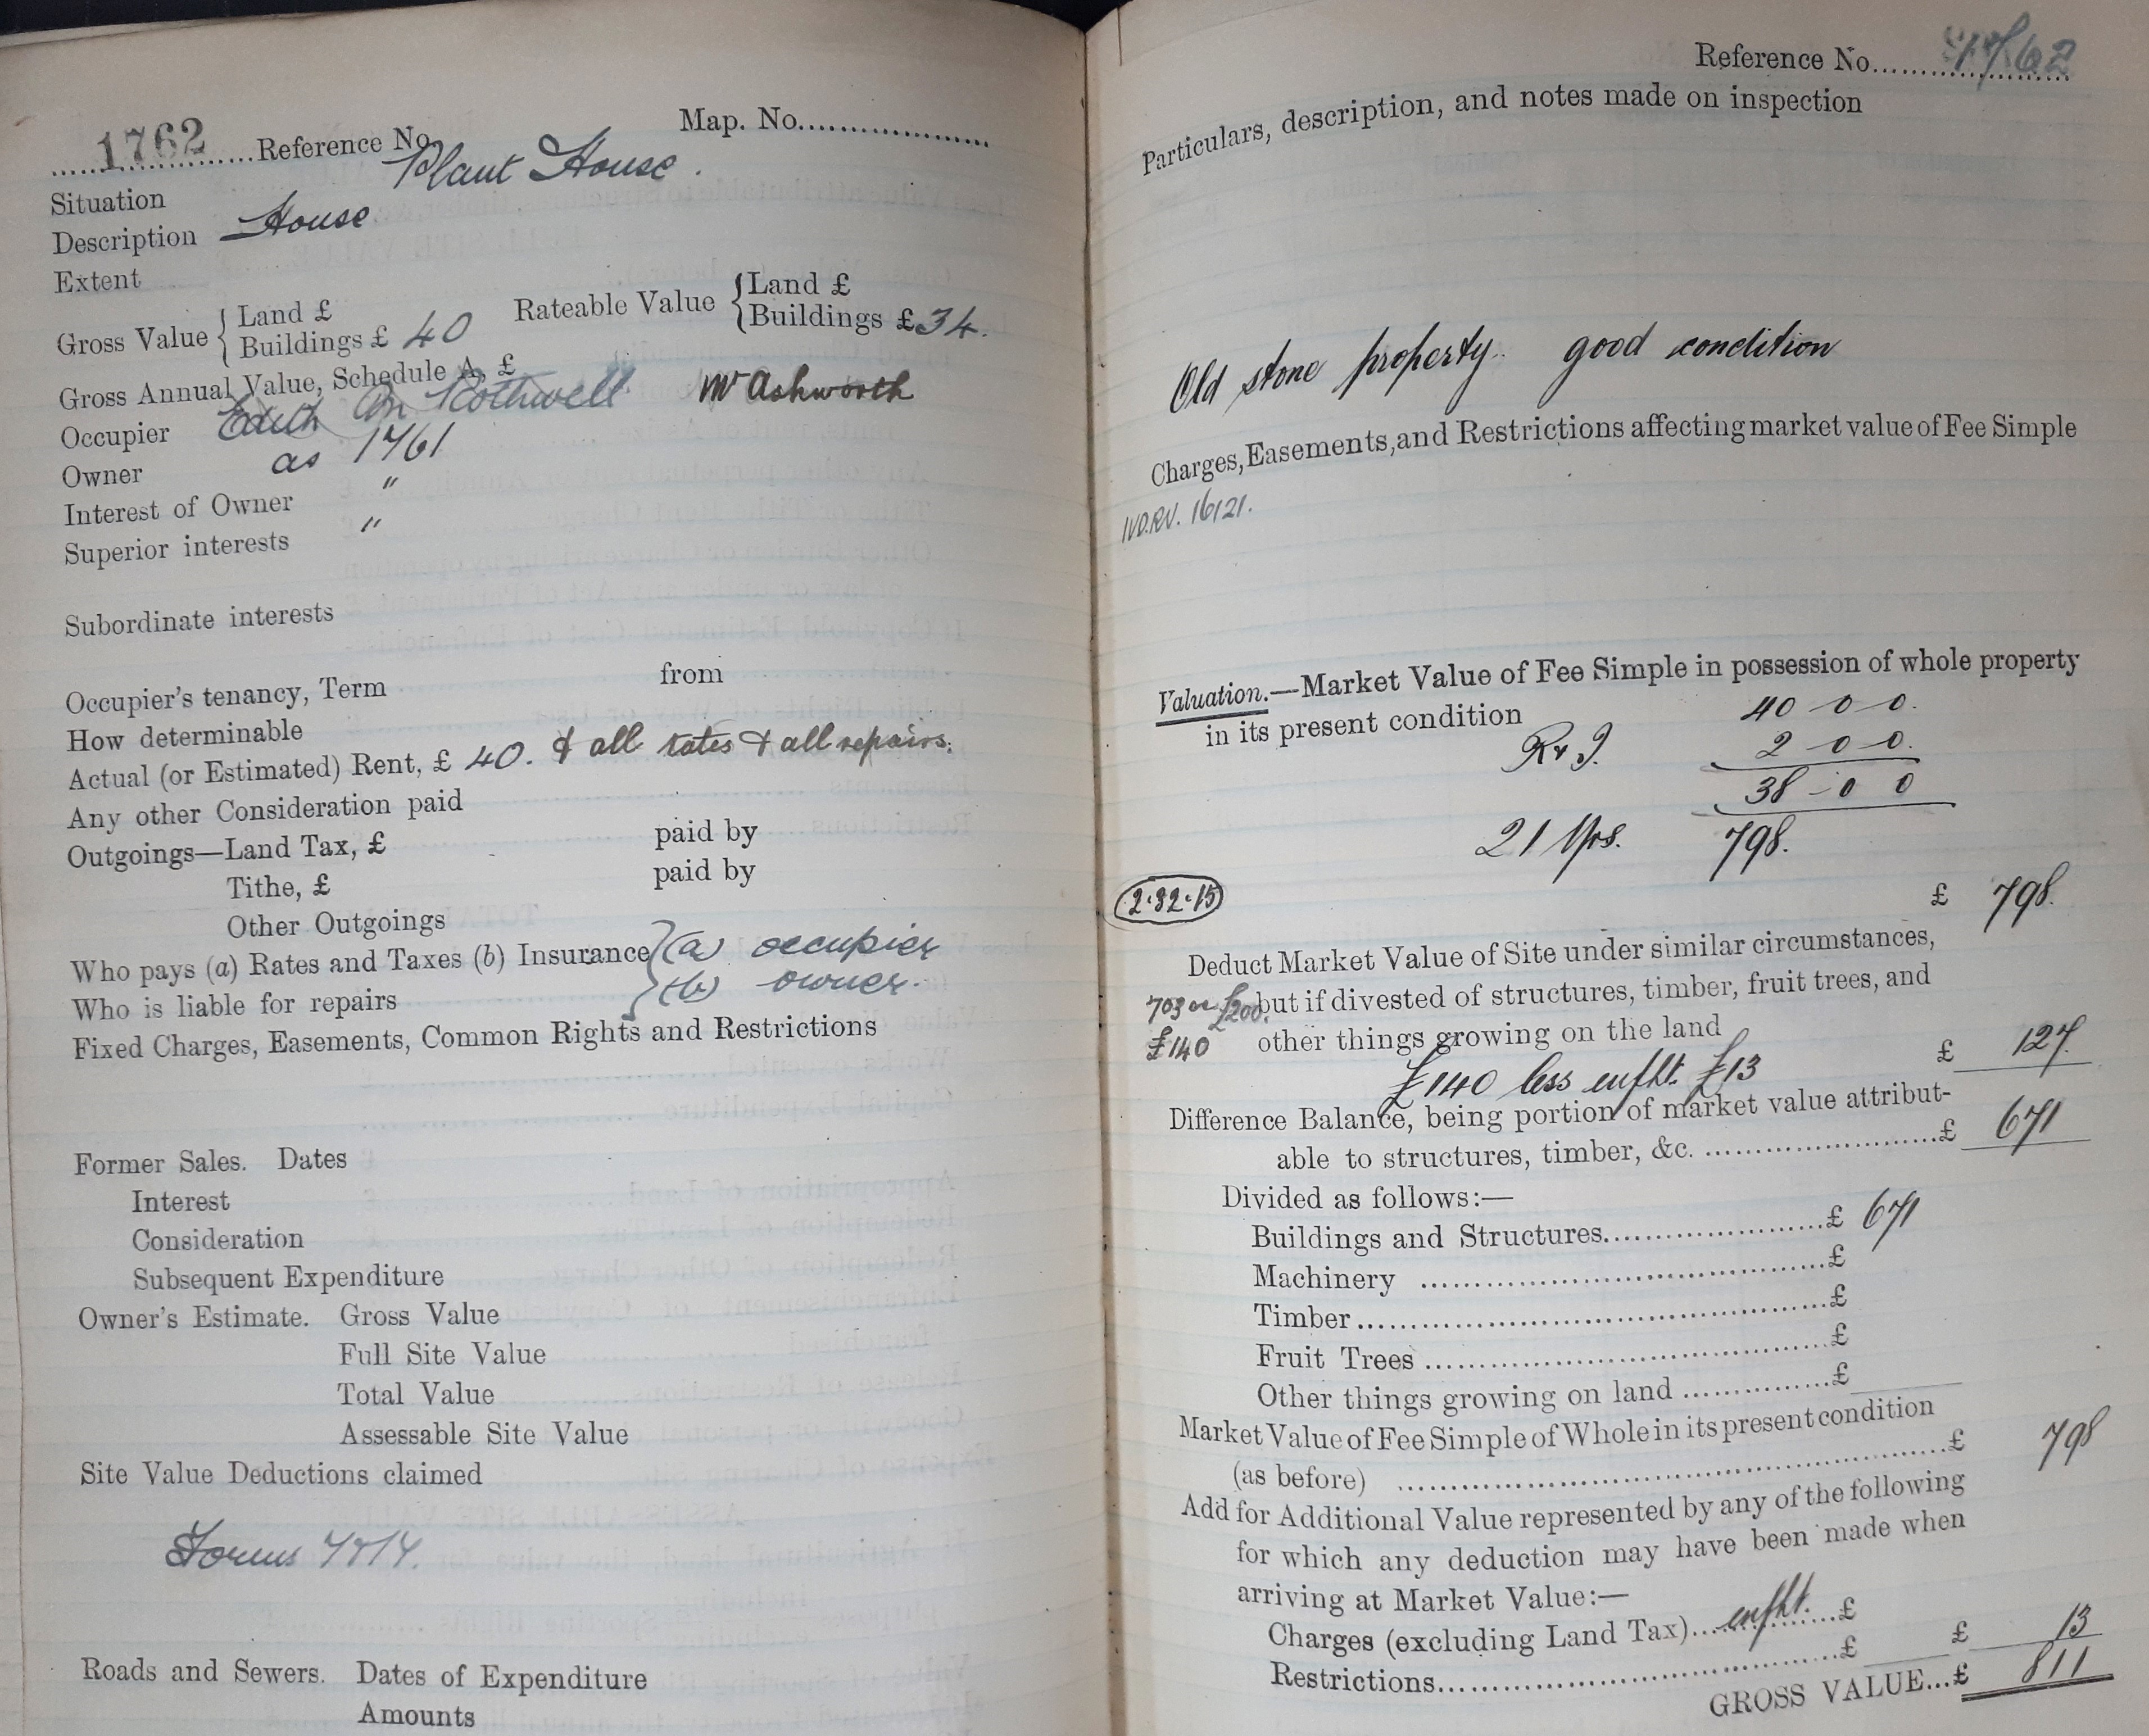 1762 Reference No. Map. No.
Situation Plant House.
Description House
Extent
Gross Value { Land £
Buildings £ 40
Rateable Value { Land £
Buildings £ 34.
Gross Annual Value, Schedule A, £
Occupier Edith Rothwell Mr Ashworth
Owner as 1761
Interest of Owner "
Superior interests "
Subordinate interests
Occupier's tenancy, Term from
How determinable
Actual (or Estimated) Rent, £ 40. & all rates & all repairs.
Any other Consideration paid
Outgoings—Land Tax, £ paid by
Tithe, £ paid by
Other Outgoings
Who pays (a) Rates and Taxes (b) Insurance } (a) occupier
Who is liable for repairs } (b) owner.
Fixed Charges, Easements, Common Rights and Restrictions
Former Sales. Dates
Interest
Consideration
Subsequent Expenditure
Owner's Estimate. Gross Value
Full Site Value
Total Value
Assessable Site Value
Site Value Deductions claimed
Forms
Roads and Sewers. Dates of Expenditure
Amounts
Reference No. 1762
Particulars, description, and notes made on inspection
Old stone property. good condition
Charges, Easements, and Restrictions affecting market value of Fee Simple
16/21.
Valuation.—Market Value of Fee Simple in possession of whole property
in its present condition 40 0 0.
R & I. 2 0 0.
38 - 0 0
21 Yrs. 798.
£ 798.
2.32.15
Deduct Market Value of Site under similar circumstances,
703 £200. but if divested of structures, timber, fruit trees, and
£140 other things growing on the land £ 127.
£140 less enfht. £13
Difference Balance, being portion of market value attribut-
able to structures, timber, &c. £ 671
Divided as follows:—
Buildings and Structures £ 671
Machinery £
Timber £
Fruit Trees £
Other things growing on land £
Market Value of Fee Simple of Whole in its present condition
(as before) £ 798
Add for Additional Value represented by any of the following
for which any deduction may have been made when
arriving at Market Value:—
Charges (excluding Land Tax) enfht. £
Restrictions £ £ 13
GROSS VALUE...£ 811